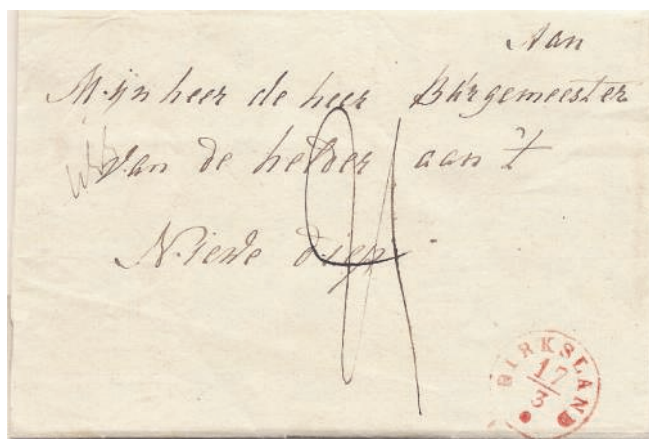 Aan
Mijn heer de heer Burgemeester
van de helder aan 't
Niewe diep
DIRKSLAND
17/3